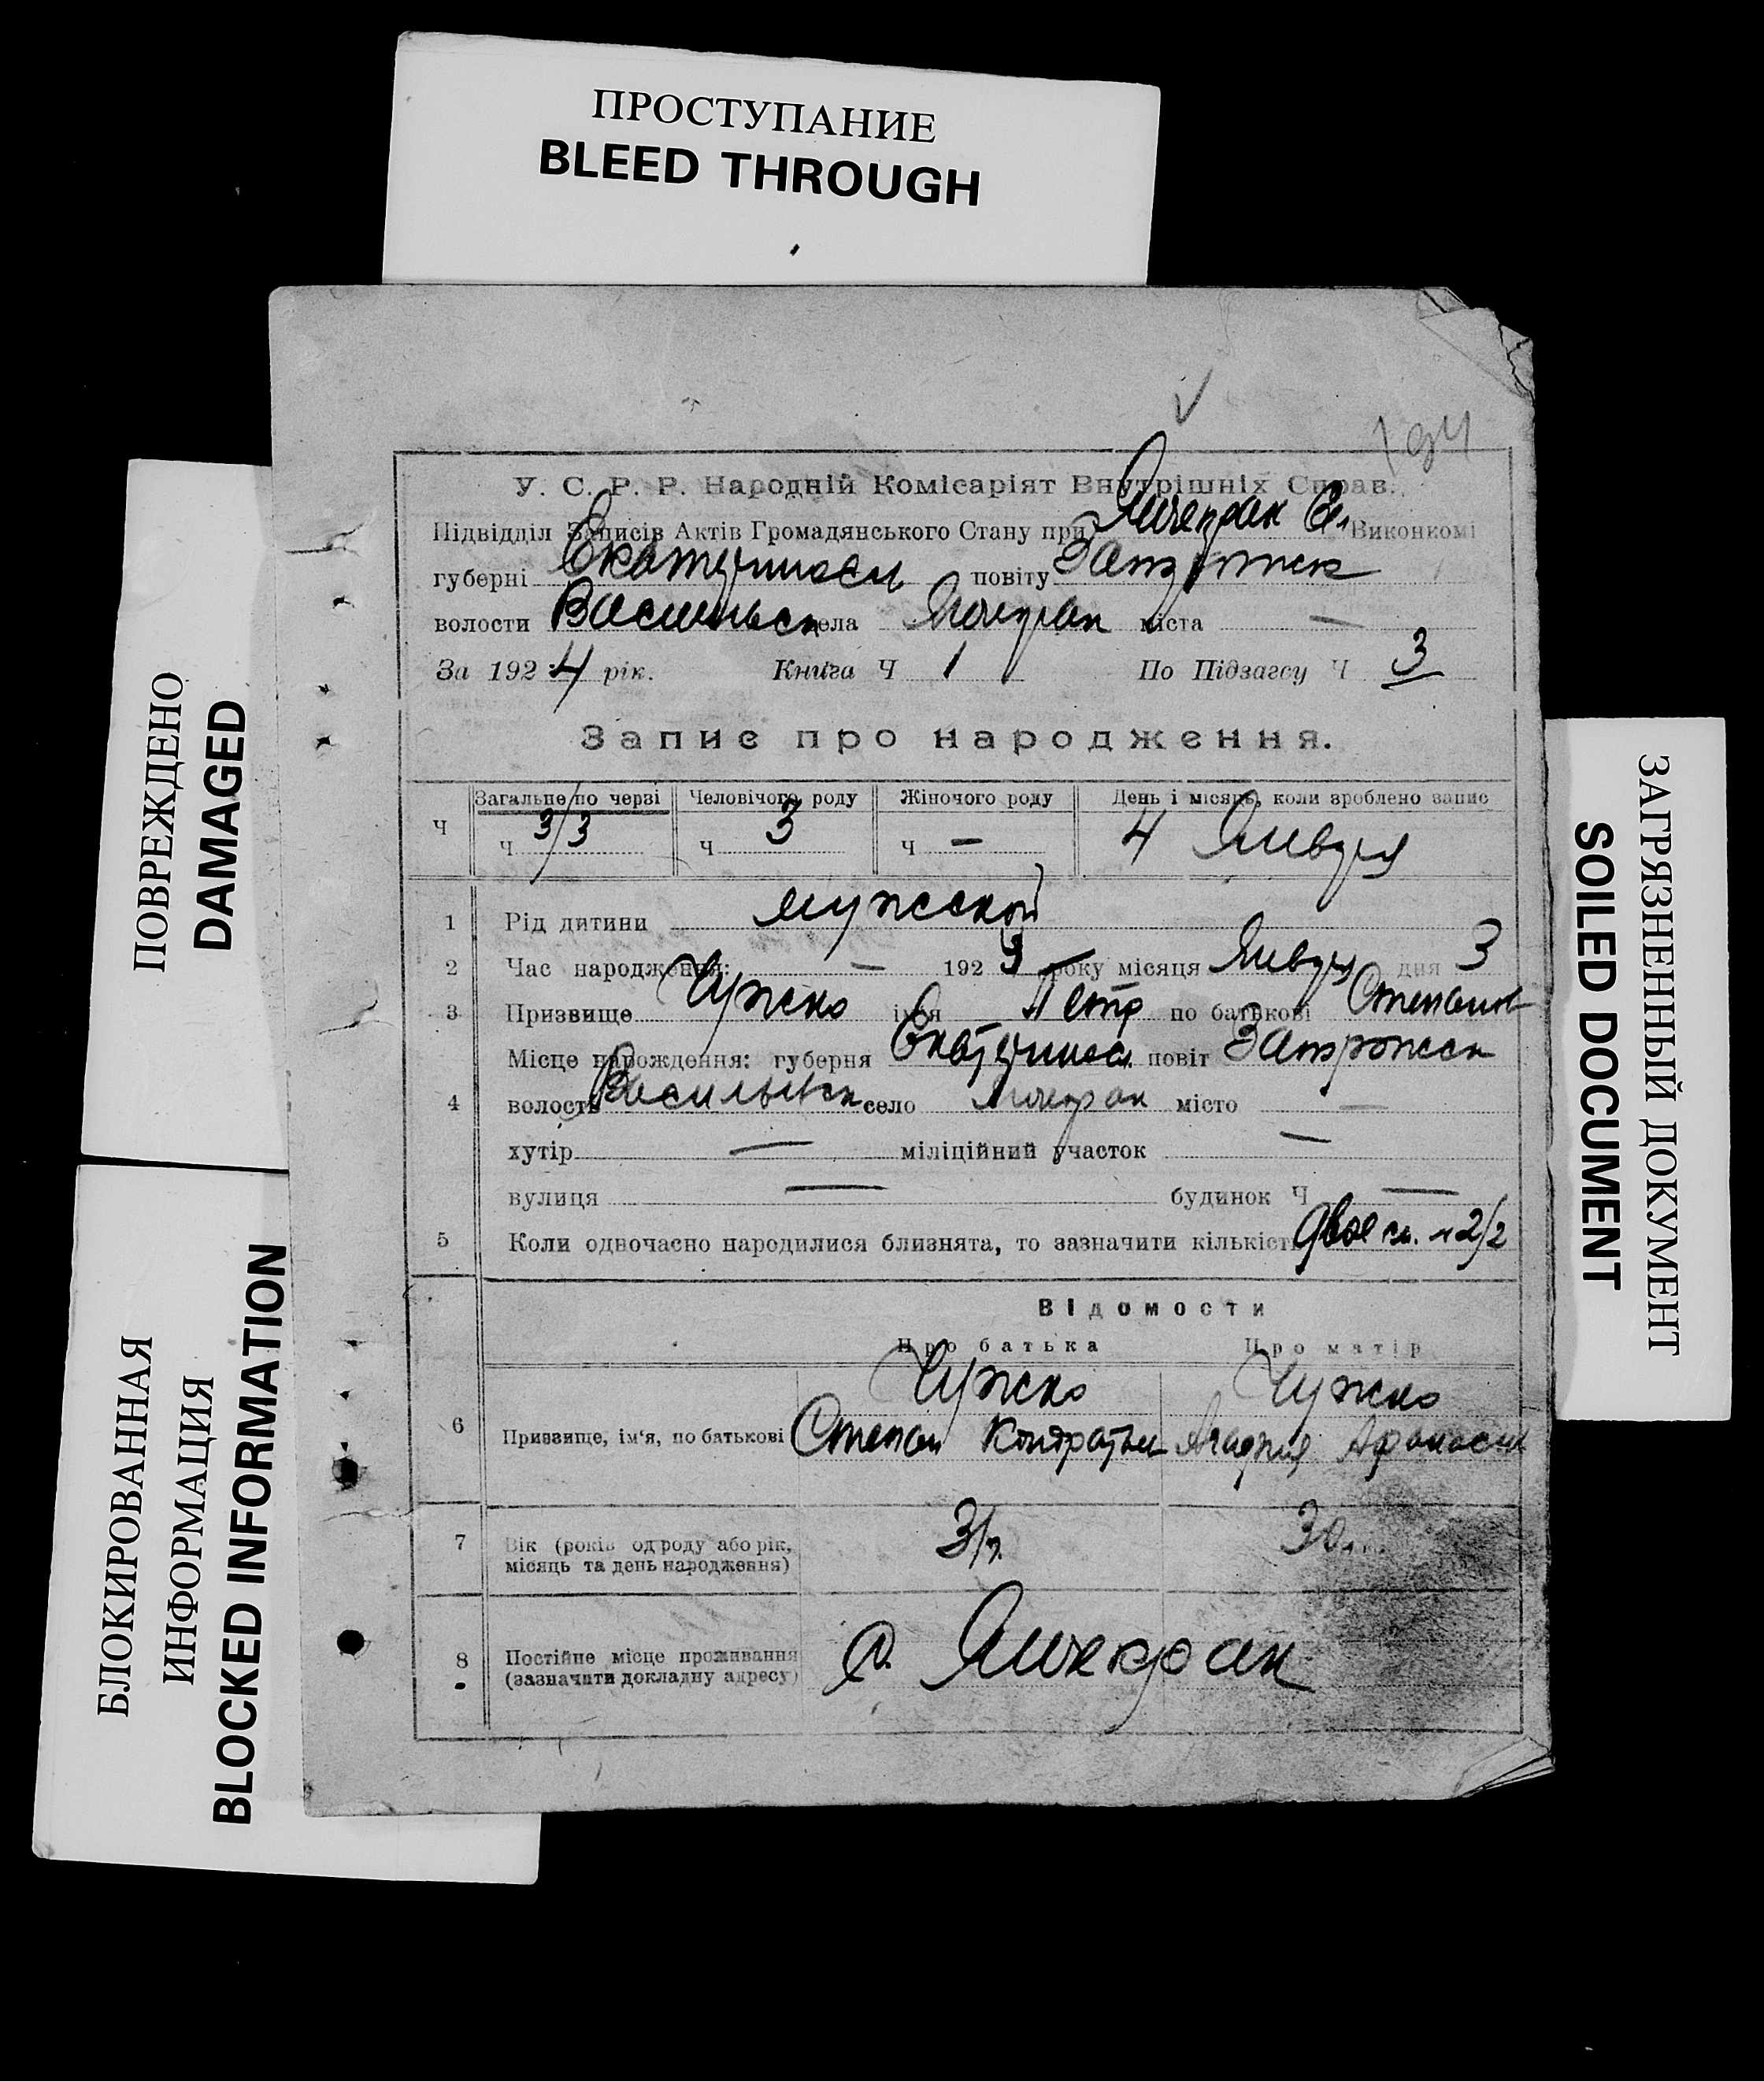 ПРОСТУПАНИЕ
BLEED THROUGH
ПОВРЕЖДЕНО
DAMAGED
БЛОКИРОВАННАЯ
ИНФОРМАЦИЯ
BLOCKED INFORMATION
ЗАГРЯЗНЕННЫЙ ДОКУМЕНТ
SOILED DOCUMENT
У. С. Р. Р. Народній Комісаріят Внутрішніх Справ.
Підвідділ Записів Актів Громадянського Стану при Янчекрак Сел Виконкомі
губерні Екатериносл повіту Запорожск
волости Васильевск села Янчекрак міста —
За 1924 рік. Книга Ч 1 По Підзагсу Ч 3
Запис про народження.
Ч Загальне по черзі Человічого роду Жіночого роду День і місяць, коли зроблено запис
Ч 3/3 Ч 3 Ч — 4 Января
1 Рід дитини мужской
2 Час народження: — 192 року місяця Января дня 3
3 Призвище Чужко ім'я Петр по батькові Степанов
Місце нарождення: губерня Екатериносл. повіт Запорожск
4 волость Васильевск село Янчекрак місто —
хутір — міліційний участок —
вулиця — будинок Ч —
5 Коли одночасно народилися близнята, то зазначити кількість двое 2/2
Відомости
Про батька Про матір
Чужко Чужко
6 Призвище, ім'я, по батькові Степан Кондратьев Афанасии
7 Вік (років одроду або рік, місяць та день народження) 31 30
8 Постійне місце проживання (зазначити докладну адресу) с. Янчекрак